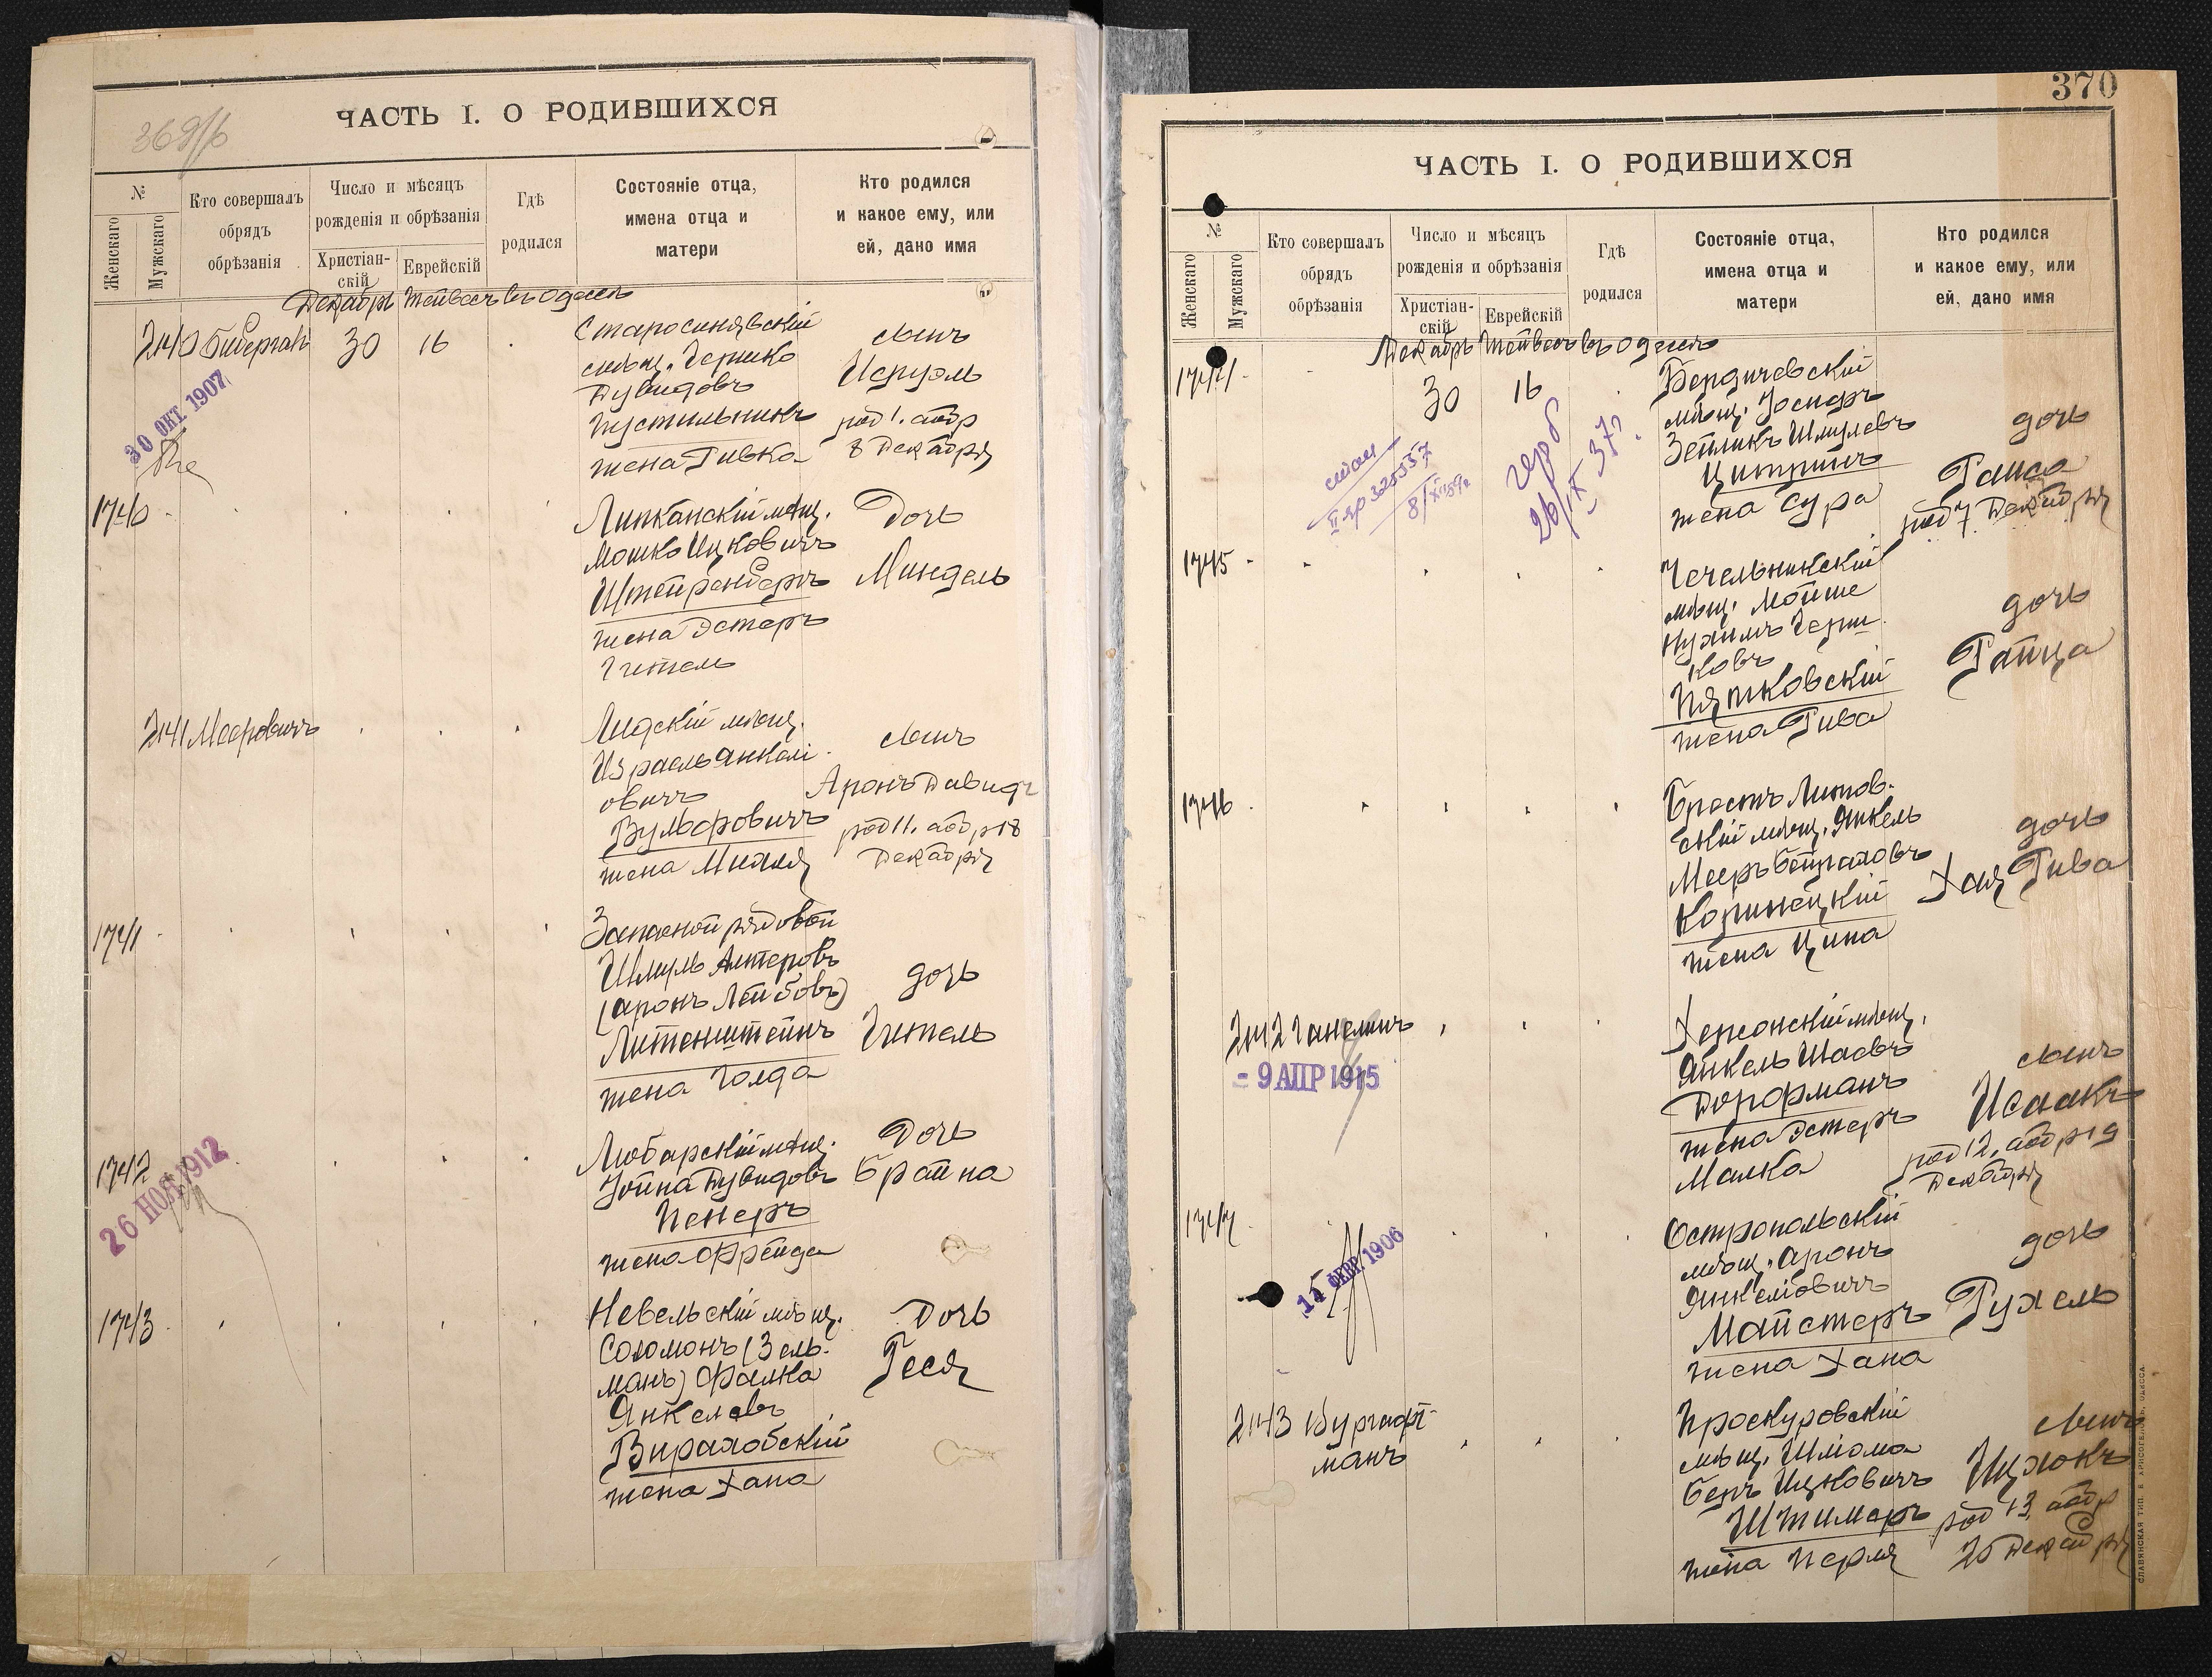 ЧАСТЬ I. О РОДИВШИХСЯ
№
Женскаго
Мужскаго
Кто совершалъ
обрядъ
обрѣзанія
Число и мѣсяцъ
рожденія и обрѣзанія
Христіан-
скій
Еврейскій
Гдѣ
родился
Состояніе отца,
имена отца и
матери
Кто родился
и какое ему, или
ей, дано имя
Декабрь Тейвесъ въ Одессѣ
30 16
Старосинявскій
мѣщ.
Дувидовъ
Пустильникъ
жена Ривка
сынъ
Исруэль
род 1. обр
8 Декабря
30 ОКТ 1907
1740
Липканскій мѣщ.
Мошко Ицковичъ
Штейренбергъ
жена Эстеръ
Гитель
Дочь
Миндель
2141 Мееровичъ
Лидскій мѣщ.
Израель Янкелі
овичъ
Вульфовичъ
жена Михля
сынъ
Аронъ Давидъ
род 11. обр 18
Декабря
1741
Запасной рядовой
Шмуль Алтеровъ
(Аронъ Лейбовъ)
Литенштейнъ
жена Голда
дочь
Гитель
1742
26 НОЯ 1912
Любарскій мѣщ.
Іойна Дувидовъ
Пекеръ
жена Фрейда
Дочь
Брайна
1743
Невельскій мѣщ.
Соломонъ (Зель-
манъ) Фалка
Янкелевъ
Вираловскій
жена Хана
Дочь
Геся
370
ЧАСТЬ I. О РОДИВШИХСЯ
№
Женскаго
Мужскаго
Кто совершалъ
обрядъ
обрѣзанія
Число и мѣсяцъ
рожденія и обрѣзанія
Христіан-
скій
Еврейскій
Гдѣ
родился
Состояніе отца,
имена отца и
матери
Кто родился
и какое ему, или
ей, дано имя
Декабрь Тейвесъ въ Одессѣ
1744
30 16
Бердичевскій
мѣщ. Іосифъ
Зейликъ Шмулевъ
Цитринъ
жена Сура
дочь
род 7 Декабря
1745
Чечельникскій
мѣщ. Мойше
Нухимъ Герш
ковъ
Пятковскій
жена Рива
дочь
Райца
1746
Брестъ Литов-
скій мѣщ. Янкель
Мееръ
Копинецкій
жена Ципа
дочь
Хая Рива
2142 Ганелинъ
- 9 АПР 1915
Херсонскій мѣщ.
Янкель Шаевъ
Дорфманъ
жена Эстеръ
Малка
сынъ
Исаакъ
род 12. обр 19
Декабря
1747
15 ФЕВР. 1906
Остропольскій
мѣщ. Аронъ
Янкеліовичъ
Майстеръ
жена Хана
дочь
Рухель
2143 Бургафт-
манъ
Проскуровскій
мѣщ. Шліома
Беръ Ицковичъ
Штимеръ
жена Перля
сынъ
Ицхокъ
род 13 обр
20 Декабря